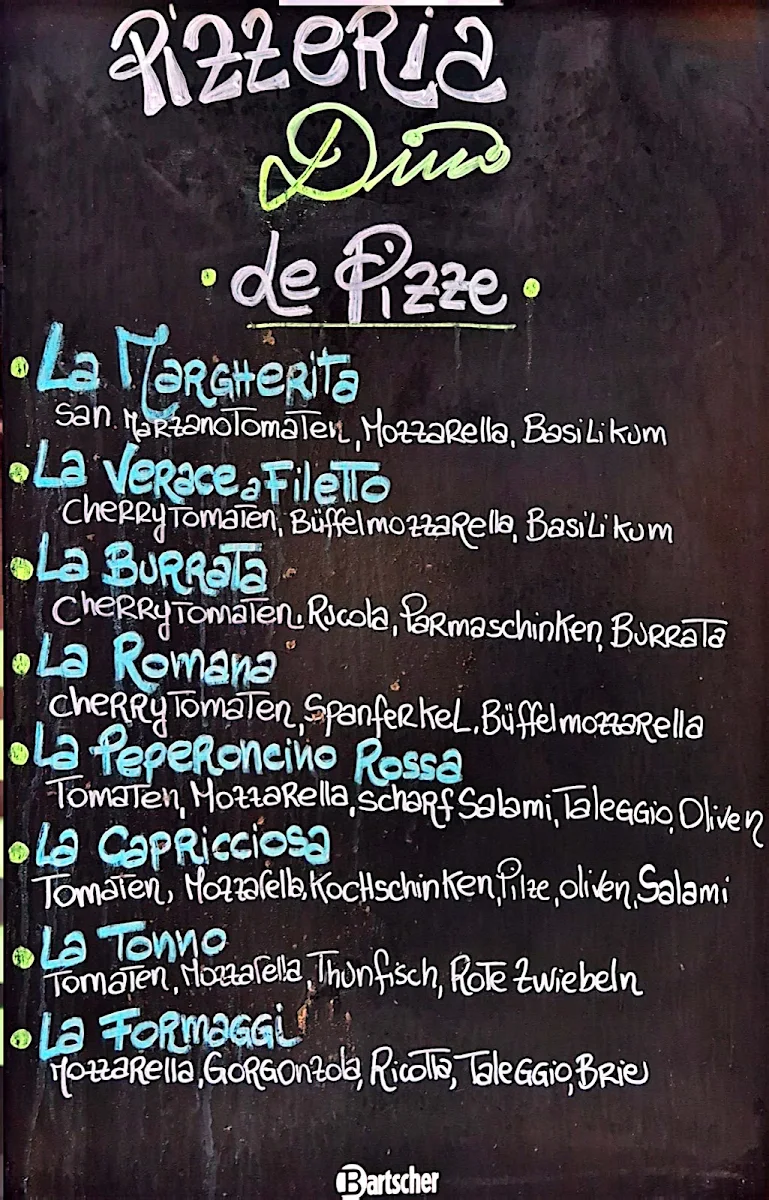 Pizzeria
Dino
de Pizze
La Margherita
San Marzano Tomaten, Mozzarella, Basilikum
La Verace a Filetto
Cherry Tomaten, Büffelmozzarella, Basilikum
La Burrata
Cherry Tomaten, Rucola, Parmaschinken, Burrata
La Romana
Cherry Tomaten, Spanferkel, Büffelmozzarella
La Peperoncino Rossa
Tomaten, Mozzarella, scharf Salami, Taleggio, Oliven
La Capricciosa
Tomaten, Mozzarella, Kochschinken, Pilze, oliven, Salami
La Tonno
Tomaten, Mozzarella, Thunfisch, Rote Zwiebeln
La Formaggi
Mozzarella, Gorgonzola, Ricotta, Taleggio, Brie
Bartscher